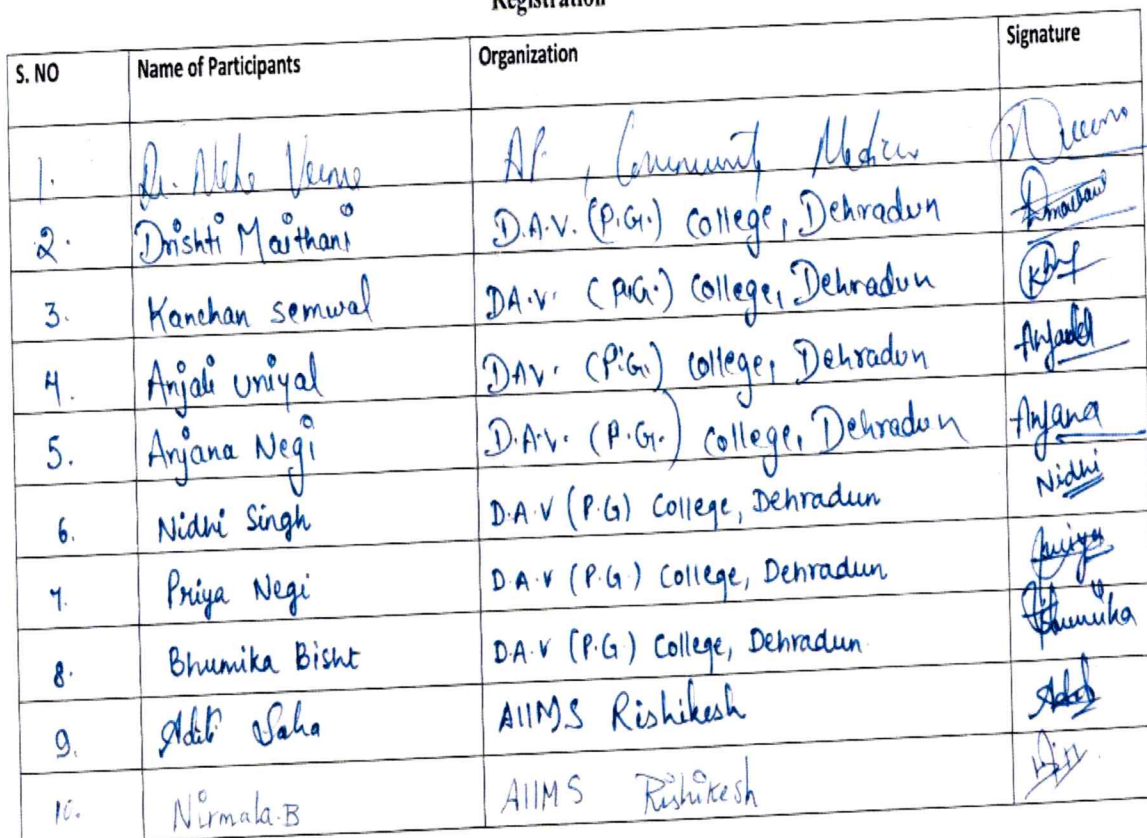 Registration
S. NO Name of Participants Organization Signature
1. Dr. Neha Verma AP, Community Medicine
2. Drishti Maithani D.A.V. (P.G.) College, Dehradun
3. Kanchan semwal DA.V. (P.G.) College, Dehradun
4. Anjali uniyal DAV. (P.G.) College, Dehradun Anjali
5. Anjana Negi D.A.V. (P.G.) College, Dehradun Anjana
6. Nidhi Singh D.A.V (P.G) College, Dehradun Nidhi
7. Priya Negi D.A.V (P.G.) College, Dehradun Priya
8. Bhumika Bisht D.A.V (P.G.) College, Dehradun. Bhumika
9. Aditi Saha AIIMS Rishikesh
10. Nirmala.B AIIMS Rishikesh